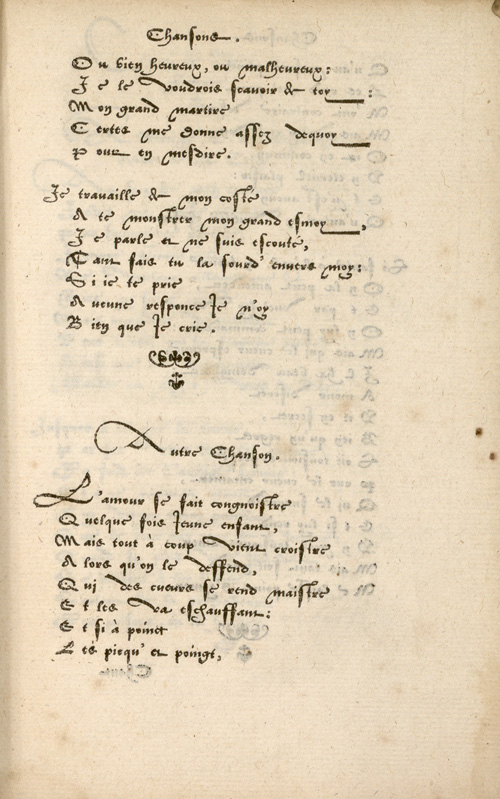 Chansons.
Ou bien heureux, ou malheureux:
Je le voudrois scavoir de toy:
Mon grand martire
Certes me donne assez dequoy
Pour en mesdire.
Je travaille de mon costé
A te monstrer mon grand esmoy,
Je parle et ne suis escouté,
Tant fais tu la sourd' envers moy:
Si ie te prie
Aveune responce Je n'oy
Bien que Je crie.
Autre Chanson.
L'amour se fait congnoistre
Quelque fois Jeune enfant,
Mais tout à coup vient croistre
Alors qu'on le deffend,
Qui des cueurs se rend maistre
Et les va eschauffant:
Et si à poinct
Les picqu' et poingt,